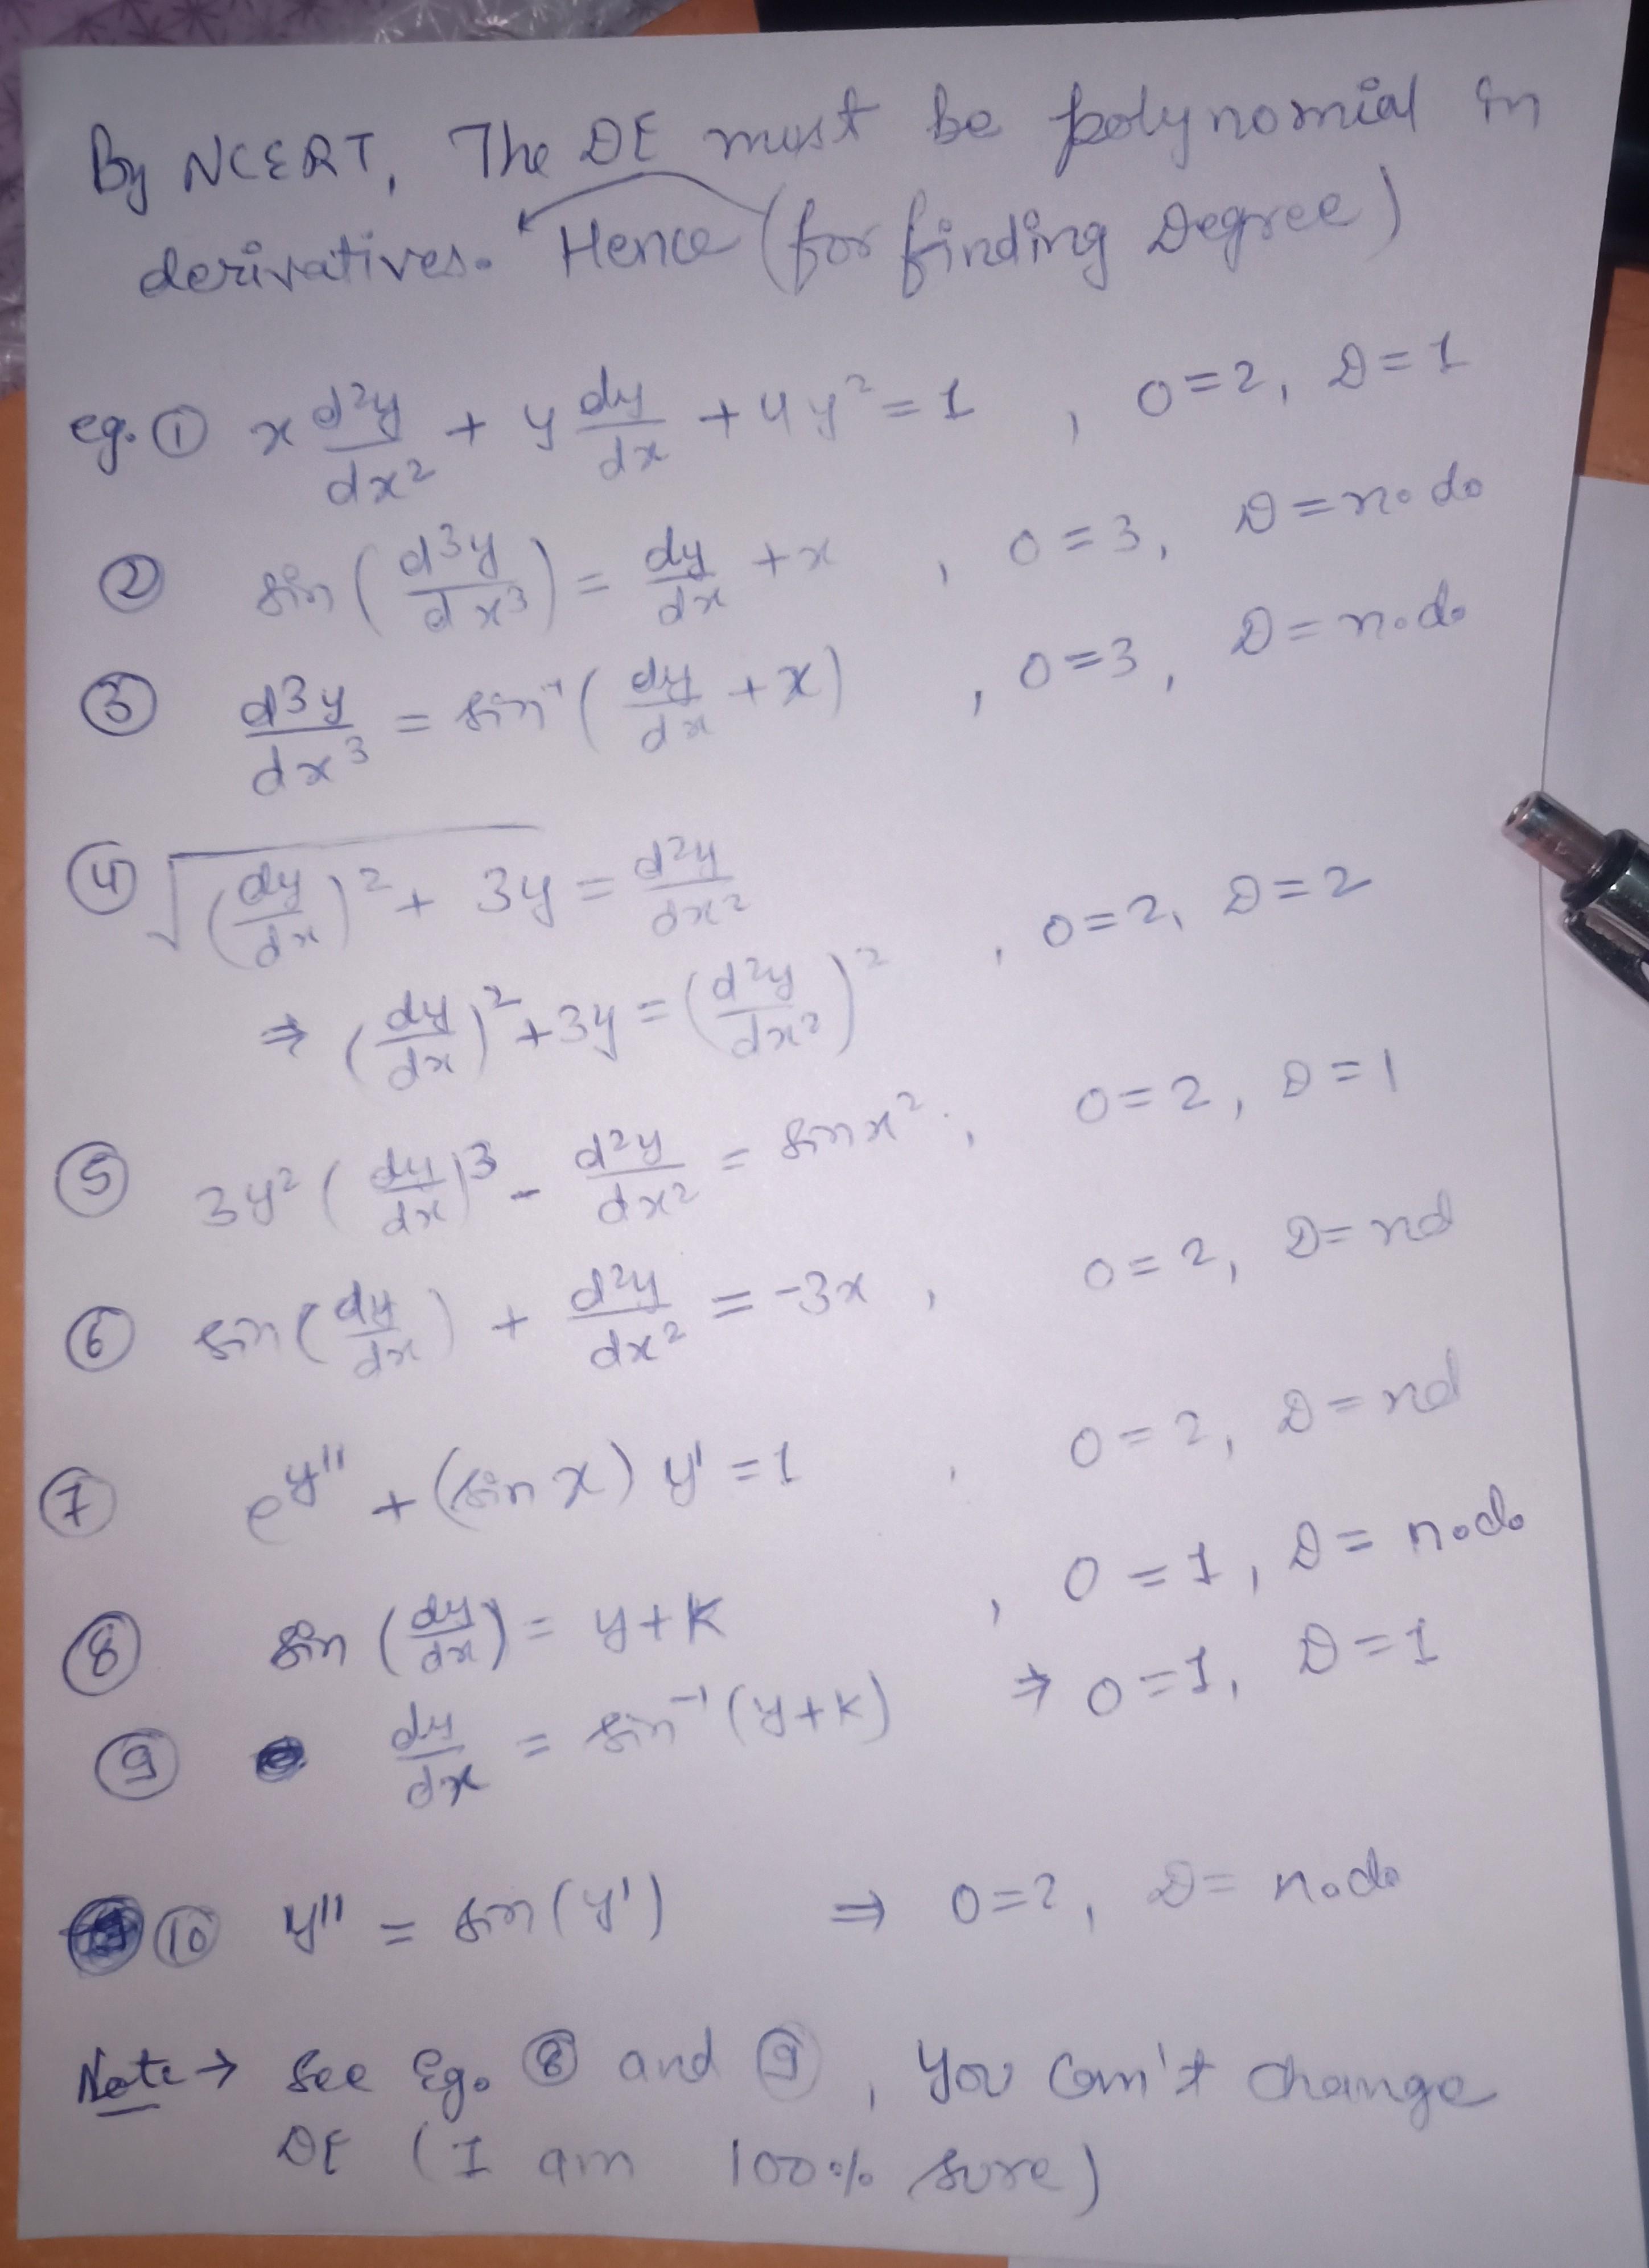 By NCERT, The DE must be polynomial in
derivatives. Hence (for finding Degree)
eg. ① x d²y/dx² + y dy/dx + 4y² = 1 , O=2, D=1
② sin(d³y/dx³) = dy/dx + x , O=3, D=n.d.
③ d³y/dx³ = sin⁻¹(dy/dx + x) , O=3, D=n.d.
④ √((dy/dx)² + 3y) = d²y/dx²
⇒ (dy/dx)² + 3y = (d²y/dx²)² , O=2, D=2
⑤ 3y²(dy/dx)³ - d²y/dx² = sin x² , O=2, D=1
⑥ sin(dy/dx) + d²y/dx² = -3x , O=2, D=nd
⑦ e^y'' + (sin x) y' = 1 , O=2, D=nd
⑧ sin(dy/dx) = y+k , O=1, D=n.d.
⑨ dy/dx = sin⁻¹(y+k) ⇒ O=1, D=1
⑩ y'' = sin(y') ⇒ O=2, D=n.d.
Note → See Eg. ⑧ and ⑨, You can't change
DE (I am 100% sure)